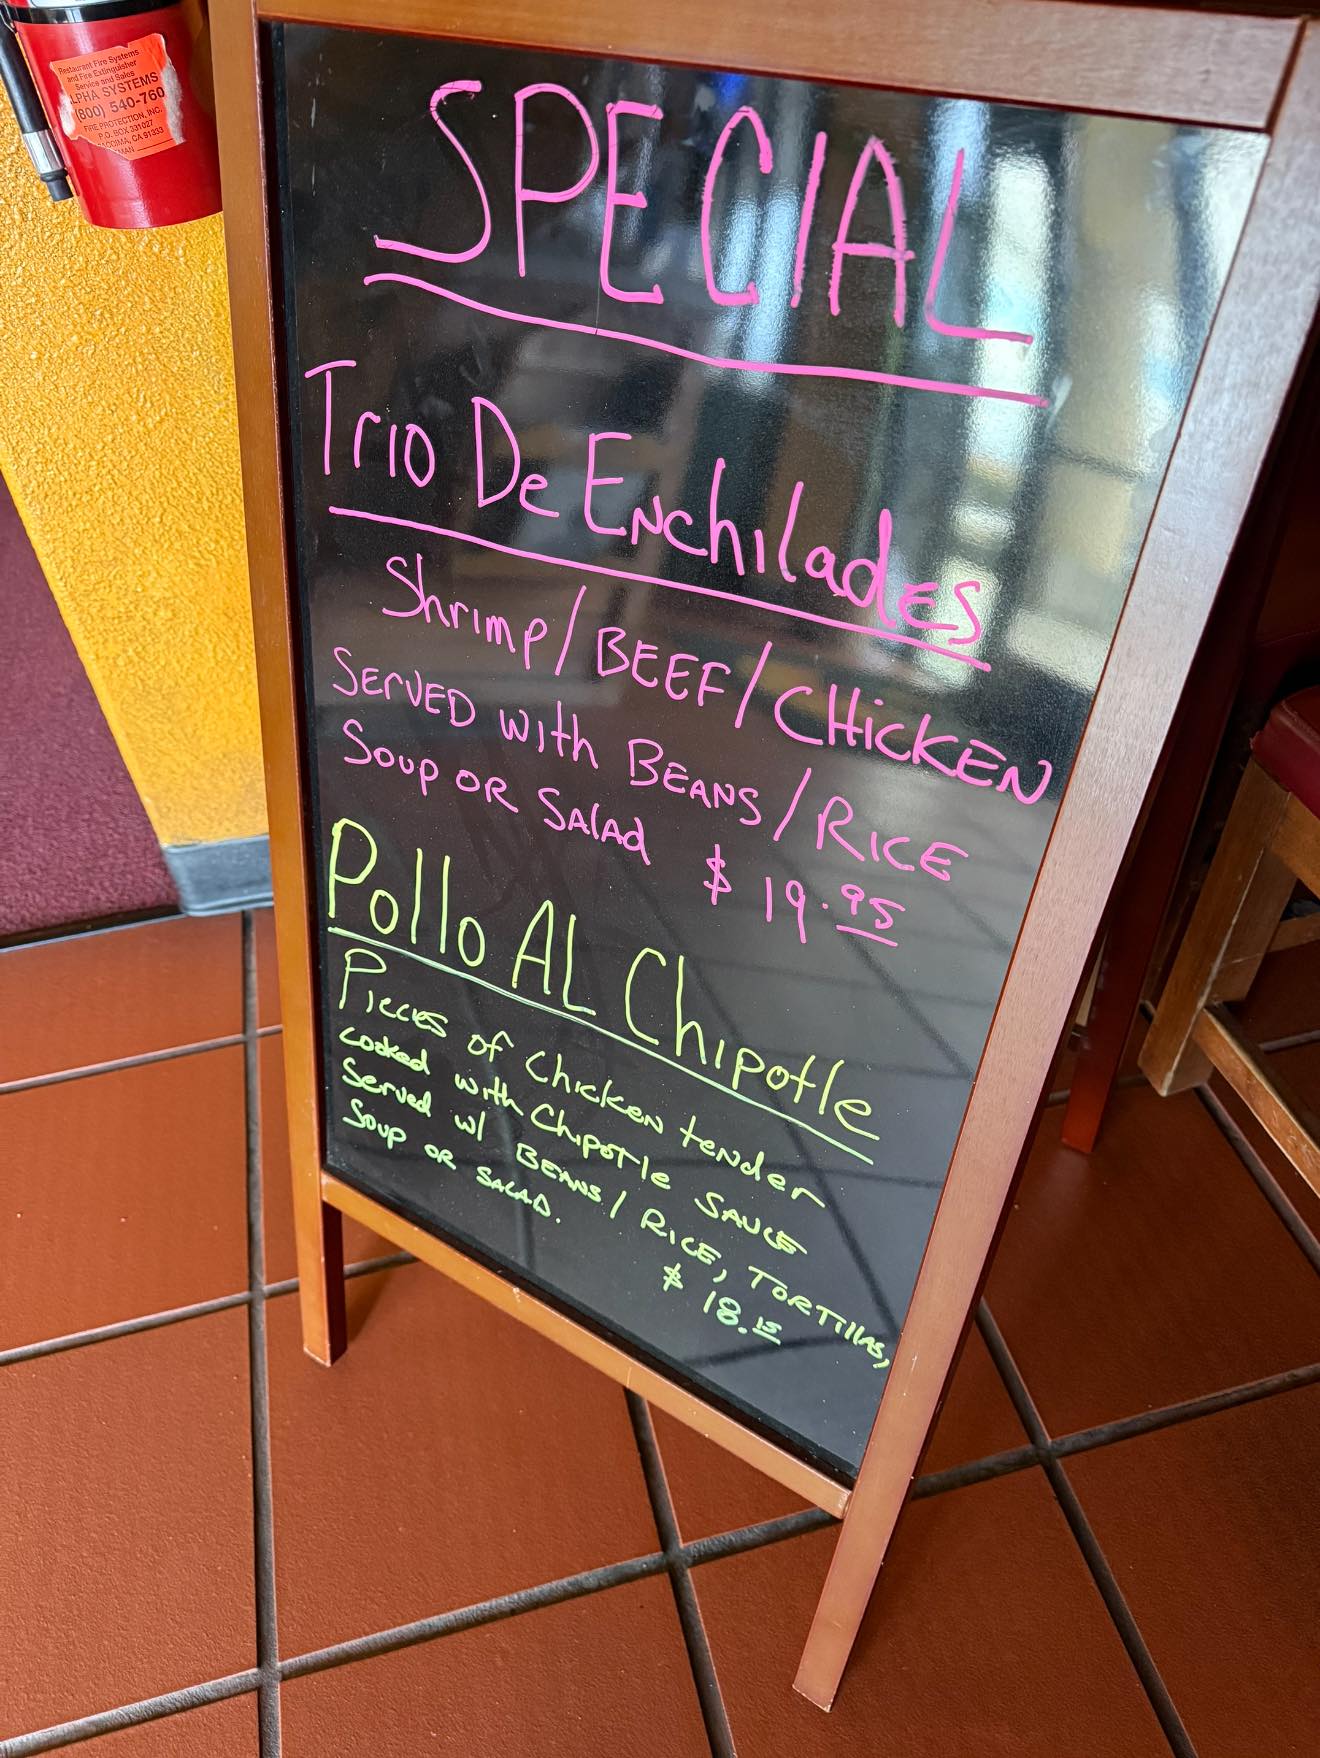 Restaurant Fire Systems
and Fire Extinguisher
Service and Sales
LPHA SYSTEMS
(800) 540-760
FIRE PROTECTION, INC.
P.O. BOX 331027
PACOIMA, CA 91333
SPECIAL
Trio De Enchilades
Shrimp/BEEF/CHICKEN
SERVED with BEANS/RICE
Soup OR Salad $19.95
Pollo AL Chipotle
Pieces of Chicken tender
cooked with Chipotle SAUCE
Served w/ BEANS/RICE, TORTIllAS,
Soup OR SALAD. $18.15